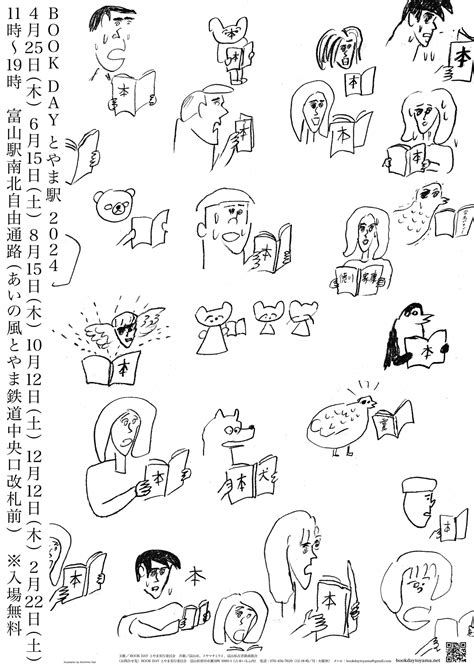 BOOK DAY とやま駅 2024
4月25日(木) 6月15日(土) 8月15日(木) 10月12日(土) 12月12日(木) 2月22日(土)
11時〜19時 富山駅南北自由通路(あいの風とやま鉄道中央口改札前) ※入場無料
本
本
本
本
本
本
本
本
本
本
徳川 家康
本
本
本
本
本 犬
本
本
本
本
本
本